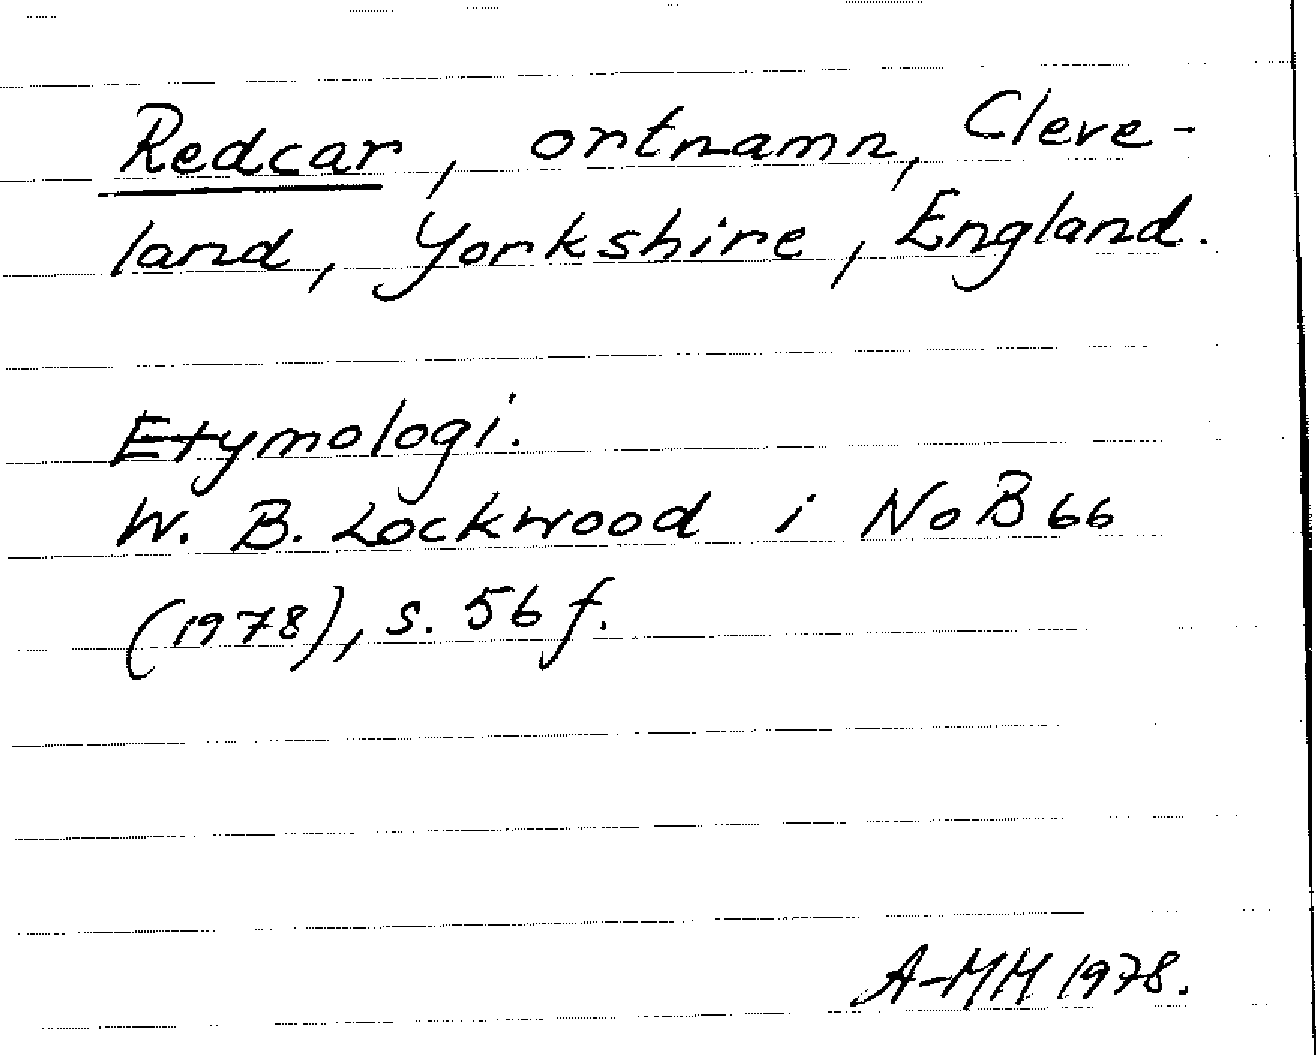 Redcar, ortnamn, Cleve-
land, Yorkshire, England.
Etymologi.
W. B. Lockwood i NoB 66
(1978), s. 56 f.
A-MH 1978.